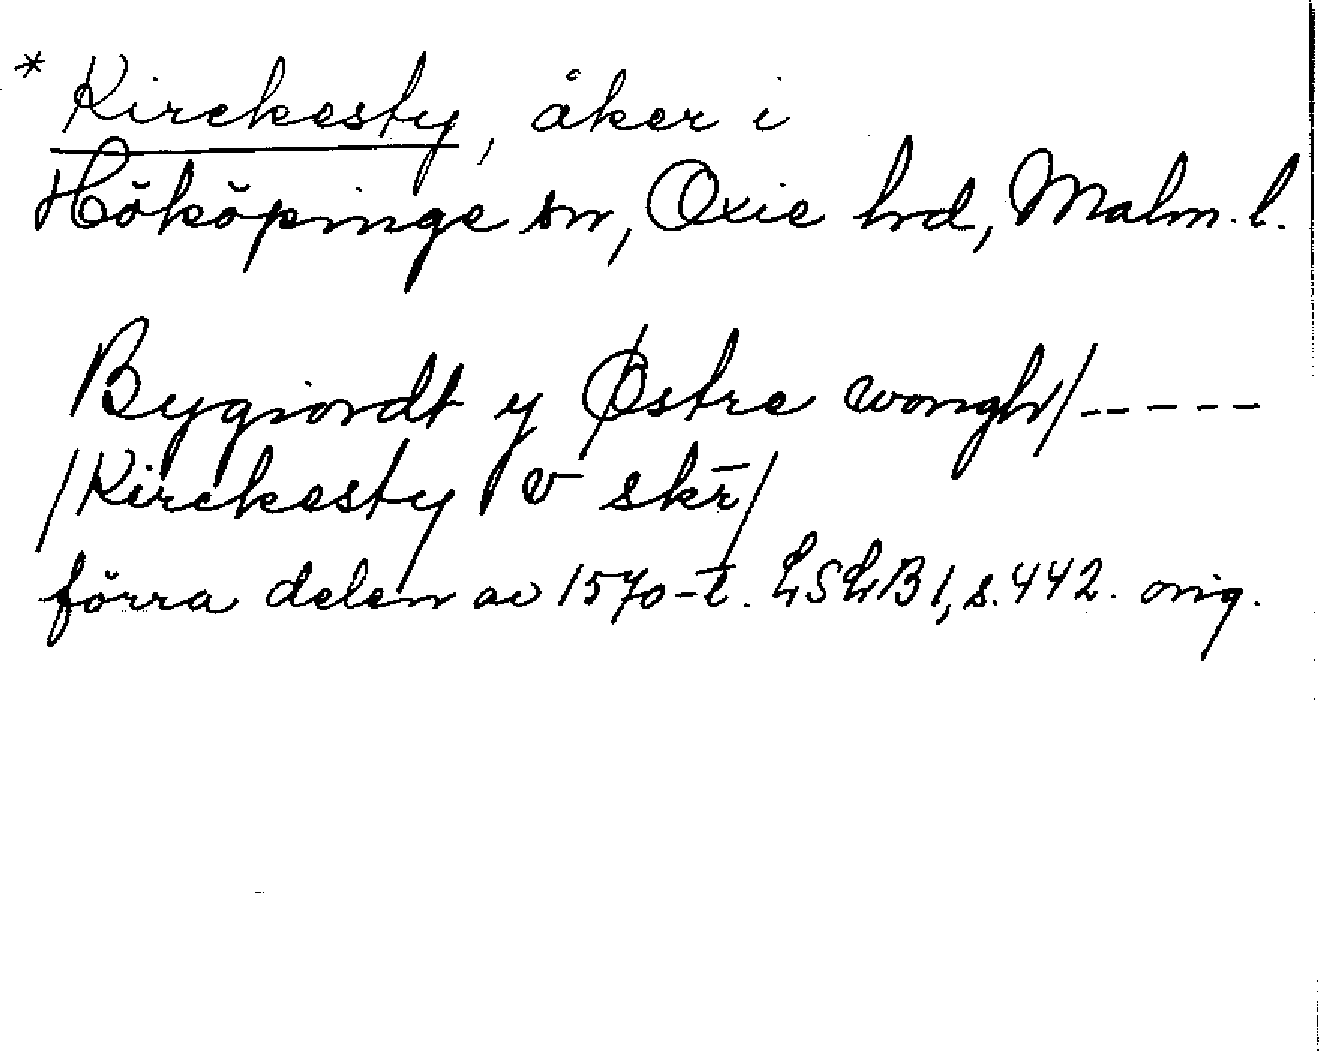 * Kirckesty, åker i
Hököpinge sn, Oxie hrd, Malm. l.
Bygiordt y Østre wongh/-----
/Kirckesty v skr̄/
förra delen av 1570-t. LSLB 1, s. 442. orig.